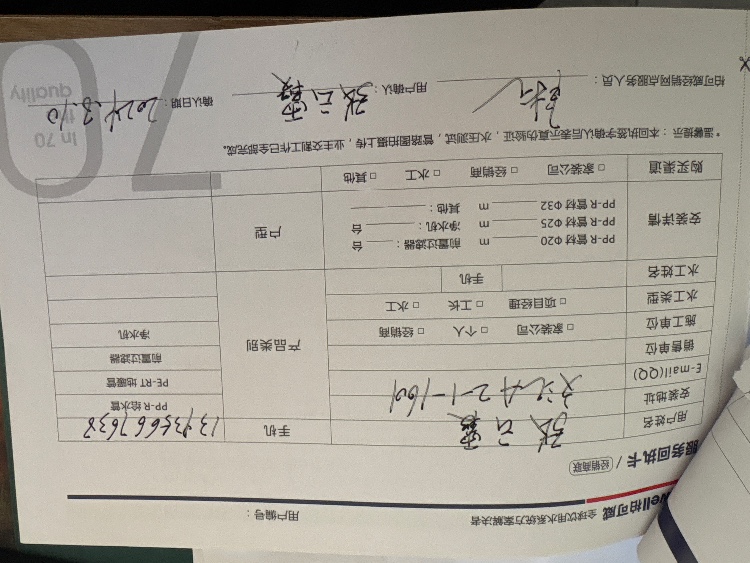 well柏可威 全球饮用水系统方案解决者
用户编号：
服务回执卡 / 经销商联
用户姓名 张云霞 手机
安装地址 A2-1-1601
E-mail(QQ)
销售单位
施工单位 □ 家装公司 □ 个人 □ 经销商
水工类型 □ 项目经理 □ 工长 □ 水工
水工姓名 手机
产品类别
PP-R 给水管
PE-RT 地暖管
前置过滤器
净水机
安装详情
PP-R 管材 Φ20 m 前置过滤器： 台
PP-R 管材 Φ25 m 净水机： 台
PP-R 管材 Φ32 m 其他：
户型
购买渠道 □ 家装公司 □ 经销商 □ 水工 □ 其他
*温馨提示：本回执签字确认后表示真伪验证，水压测试，管路图拍摄上传，业主交割工作已全部完成。
柏可威经销网点服务人员： 用户确认：张云霞 确认日期：2024.3.10
70
In 70
quality